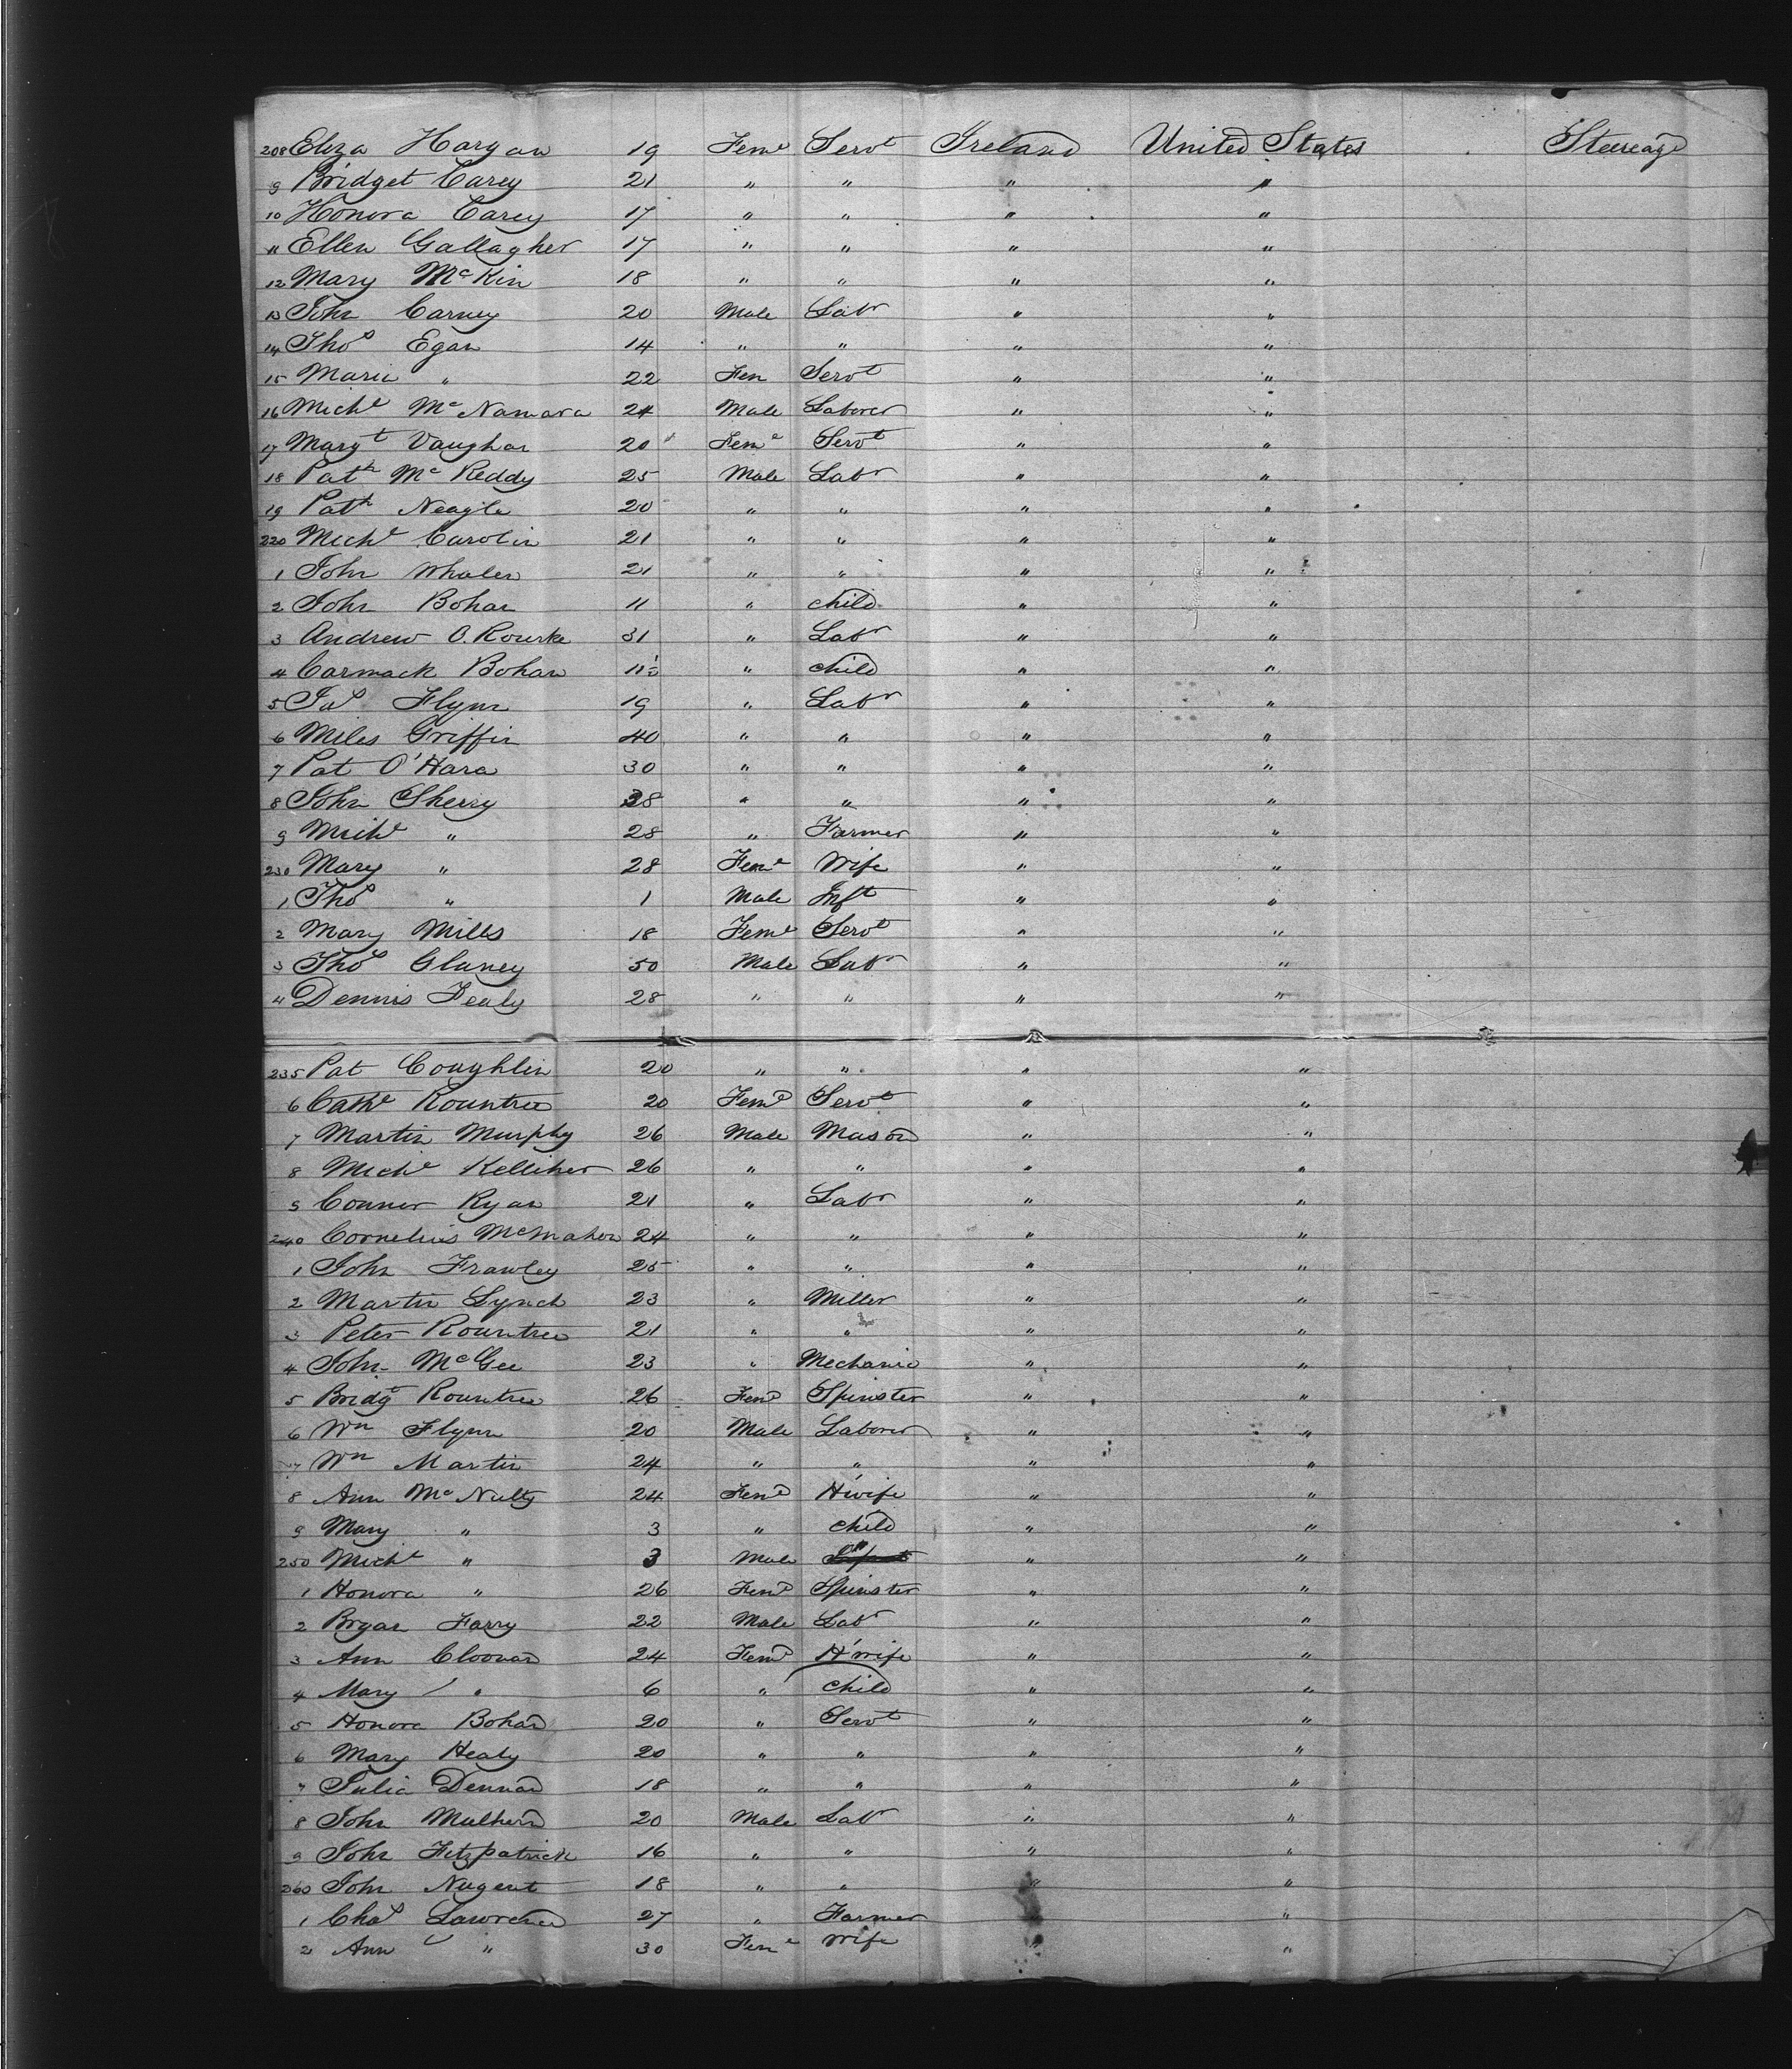 208 Eliza Hargan 19 Feme Servt Ireland United States Steerage
9 Bridget Carey 21 " " " "
10 Honora Carey 17 " " " "
11 Ellen Gallagher 17 " " " "
12 Mary McKin 18 " " " "
13 John Carney 20 Male Labr " "
14 Thos Egan 14 " " " "
15 Maria " 22 Fem Servt " "
16 Michl McNamara 24 Male Laborer " "
17 Margt Vaughan 20 Feme Servt " "
18 Patk McReddy 25 Male Labr " "
19 Patk Neagle 20 " " " "
220 Michl Carolin 21 " " " "
1 John Whalen 21 " " " "
2 John Bohan 11 " child " "
3 Andrew O.Rourke 31 " Labr " "
4 Carmack Bohan 11 " child " "
5 Jas Flynn 19 " Labr " "
6 Miles Griffin 40 " " " "
7 Pat O'Hara 30 " " " "
8 John Sherry 38 " " " "
9 Michl " 28 " Farmer " "
230 Mary " 28 Feme Wife " "
1 Thos " 1 Male Inft " "
2 Mary Mills 18 Feme Servt " "
3 Thos Glaney 50 Male Labr " "
4 Dennis Fealy 28 " " " "
235 Pat Coughlin 20 " " " "
6 Cathe Rountree 20 Feme Servt " "
7 Martin Murphy 26 Male Mason " "
8 Michl Kelliher 26 " " " "
9 Connor Ryan 21 " Labr " "
240 Cornelius McMahon 24 " " " "
1 John Frawley 25 " " " "
2 Martin Lynch 23 " Miller " "
3 Peter Rountree 21 " " " "
4 John McGee 23 " Mechanic " "
5 Bridgt Rountree 26 Feme Spinster " "
6 Wm Flynn 20 Male Laborer " "
7 Wm Martin 24 " " " "
8 Ann McNulty 24 Feme H'wife " "
9 Mary " 3 " child " "
250 Michl " 3 Male " " "
1 Honora " 26 Feme Spinster " "
2 Bryan Farry 22 Male Labr " "
3 Ann Cloonan 24 Feme H'wife " "
4 Mary " 6 " child " "
5 Honora Bohan 20 " Servt " "
6 Mary Healy 20 " " " "
7 Julia Dennan 18 " " " "
8 John Mulhern 20 Male Labr " "
9 John Fitzpatrick 16 " " " "
260 John Nugent 18 " " " "
1 Chas Lawrence 27 " Farmer " "
2 Ann " 30 Feme Wife " "